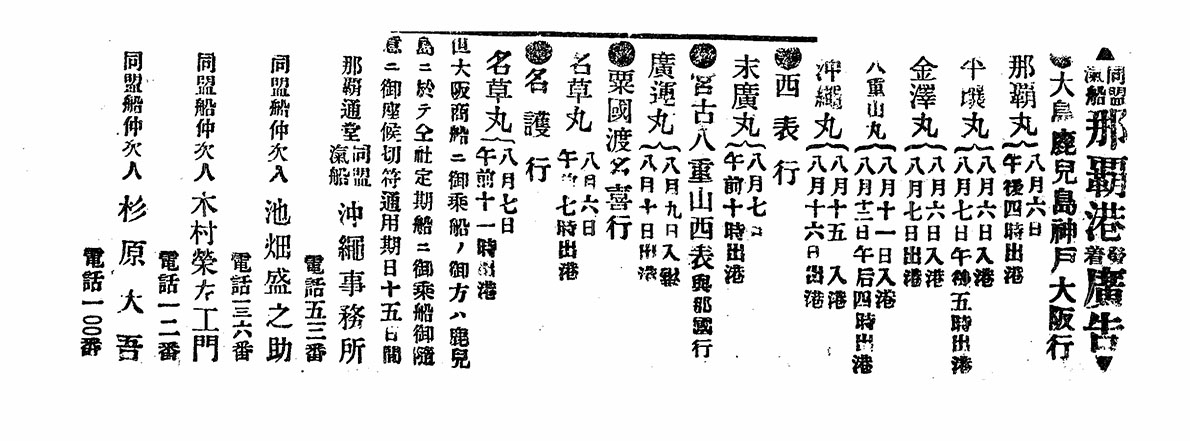 同盟滊船 那覇港發着廣告
●大島鹿兒島神戸大阪行
那覇丸 八月六日午後四時出港
平壤丸 八月六日入港 八月七日午後五時出港
金澤丸 八月六日入港 八月七日出港
八重山丸 八月十一日入港 八月十二日午后四時出港
沖繩丸 八月十五 入港 八月十六日出港
●西表行
末廣丸 八月七日午前十時出港
●宮古八重山西表與那國行
廣運丸 八月九日入港 八月十日出港
●粟國渡名喜行
名草丸 八月六日午後七時出港
●名護行
名草丸 八月七日午前十一時出港
但大阪商船ニ御乘船ノ御方ハ鹿兒
島ニ於テ仝社定期船ニ御乘船御隨
意ニ御座候切符通用期日十五日間
那覇通堂 同盟滊船 沖繩事務所
電話五三番
同盟船仲次人 池畑盛之助
電話三六番
同盟船仲次人 木村榮左工門
電話一二番
同盟船仲次人 杉原大吾
電話一〇〇番